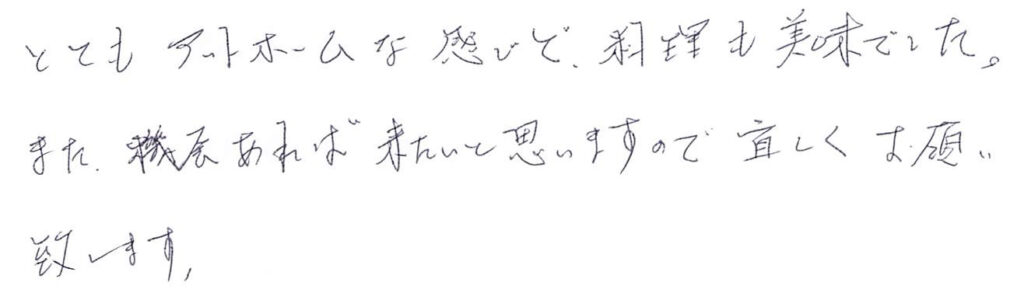 とてもアットホームな感じで、料理も美味でした。
また、機会あれば来たいと思いますので宜しくお願い
致します。